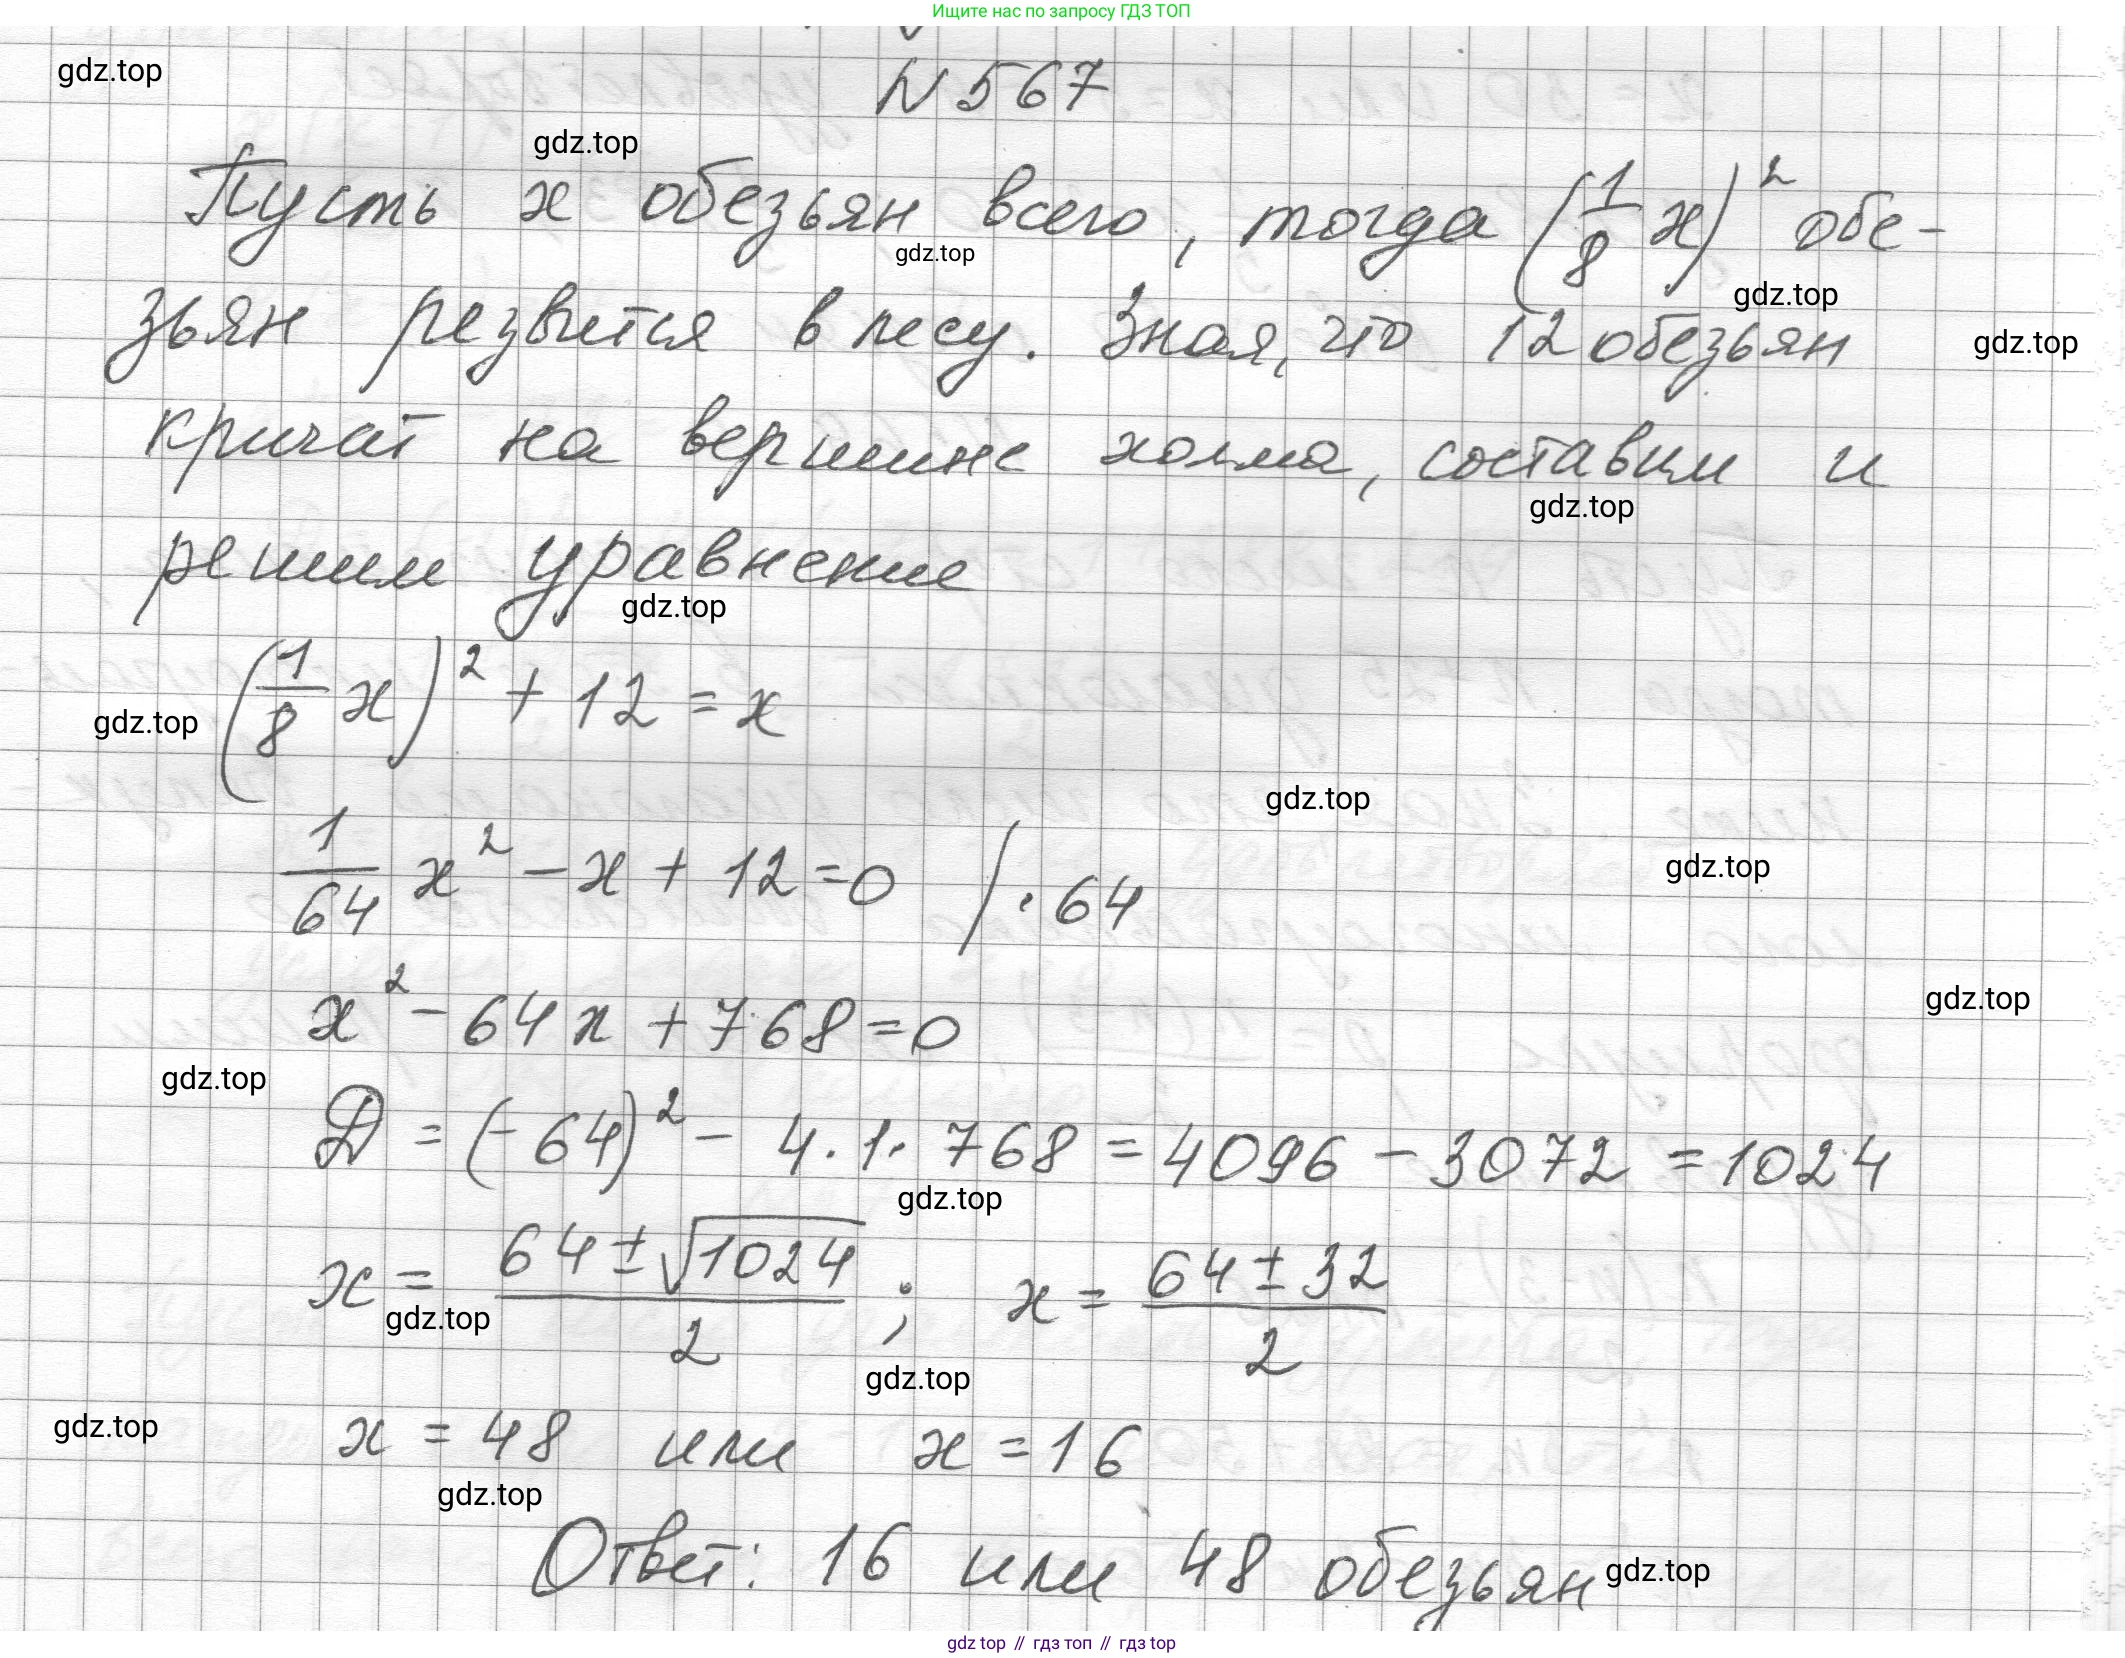 Ищите нас по запросу ГДЗ ТОП
gdz.top
N 567
gdz.top
Пусть x обезьян всего, тогда (1/8 x)² обе-
gdz.top
gdz.top
зьян резвится в лесу. Зная, что 12 обезьян
gdz.top
кричат на вершине холма, составим и
gdz.top
решим уравнение
gdz.top
(1/8 x)² + 12 = x
gdz.top
gdz.top
1/64 x² - x + 12 = 0 / · 64
gdz.top
x² - 64x + 768 = 0
gdz.top
gdz.top
D = (-64)² - 4 · 1 · 768 = 4096 - 3072 = 1024
gdz.top
x = (64 ± √1024)/2 ; x = (64 ± 32)/2
gdz.top
gdz.top
x = 48 или x = 16
gdz.top
gdz.top
Ответ: 16 или 48 обезьян
gdz.top
gdz top // гдз топ // гдз top